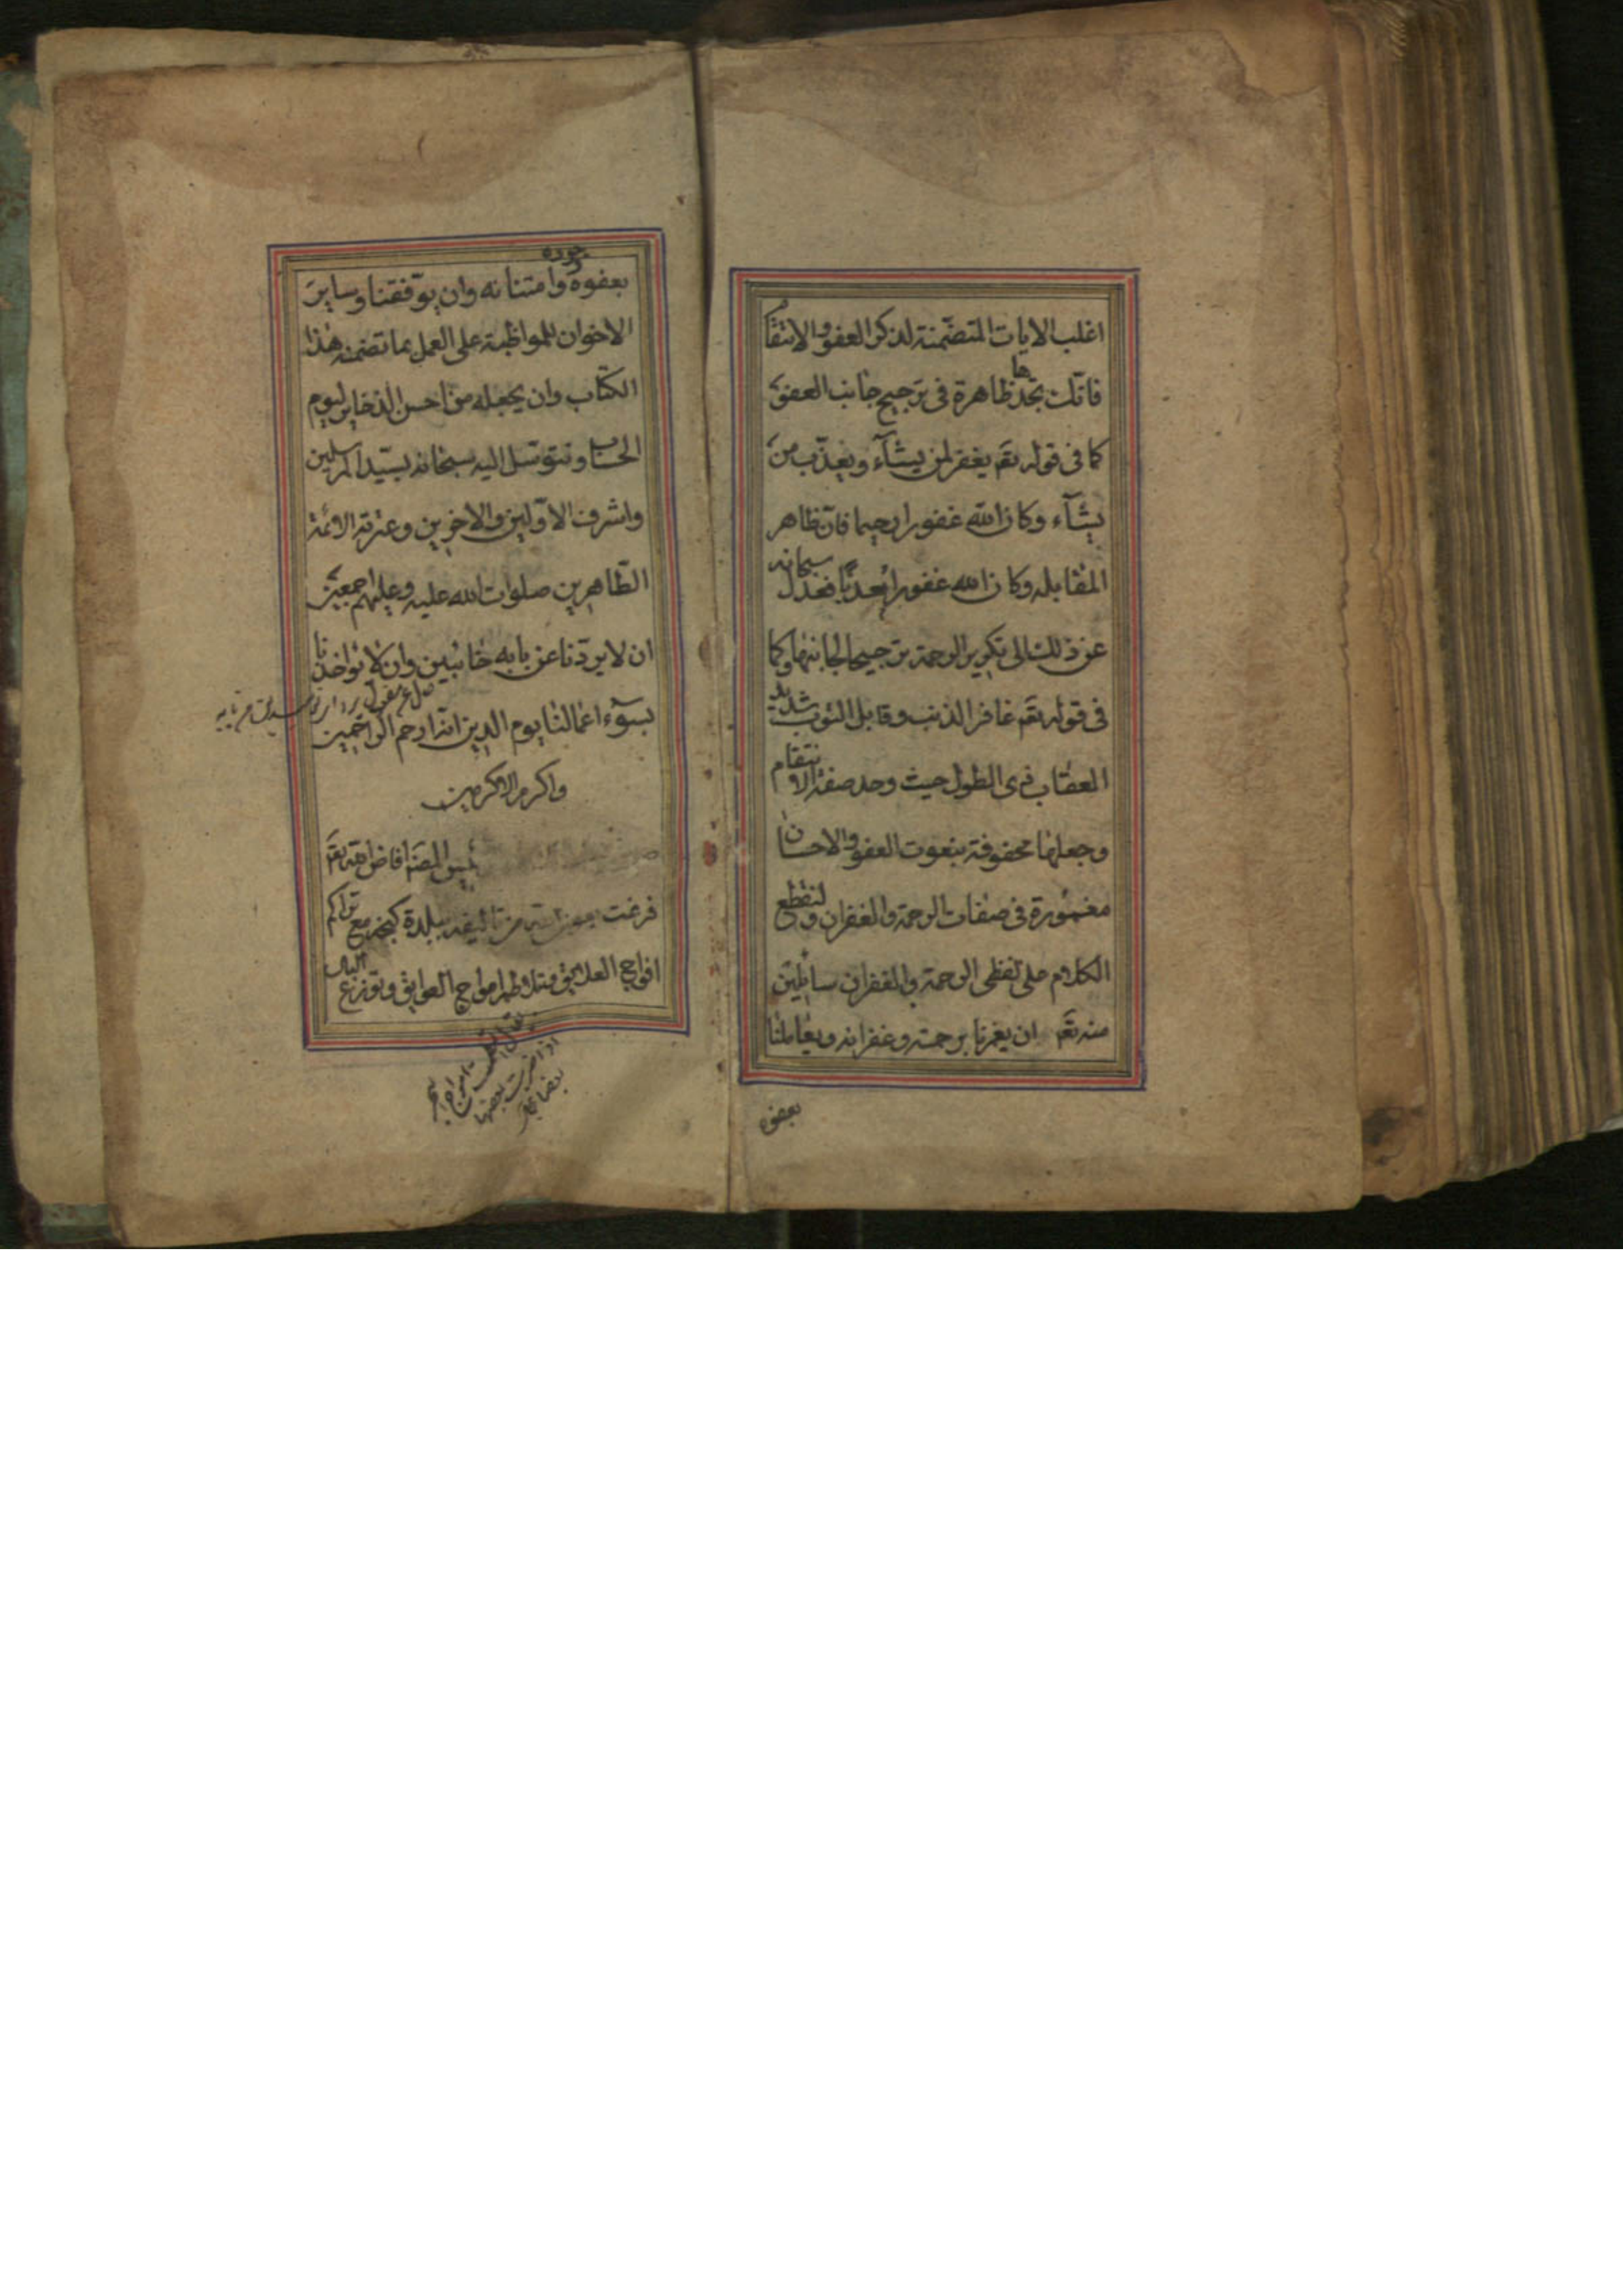 اغلب الايات المتضمنة لذكر العفو والانتقام
فانك تجدها ظاهرة فى ترجيح جانب العفو
كما فى قوله تعٓ يغفر لمن يشآء ويعذّب من
يشآء وكان الله غفورا رحيما فان ظاهر
المقابله وكان الله غفورا معذبا فعدل سبحانه
عن ذلك الى تكرير الرحمة ترجيحا لجانبها وكما
فى قوله تعٓ غافر الذنب وقابل التوب شديد
العقاب ذى الطول حيث وحد صفة الانتقام
وجعلها محفوفة بنعوت العفو والاحسان
مغمورة فى صفات الرحمة والغفران ولنقطع
الكلام على لفظى الرحمة والغفران سائلين
منه تعٓ ان يغمرنا برحمته وغفرانه ويعاملنا
بعفوه
بعفوه وجوده وامتنانه وان يوفقنا وساير
الاخوان للمواظبة على العمل بما تضمنه هذا
الكتاب وان يجعله من احسن الذخاير ليوم
الحساب ونتوسّل اليه سبحانه بسيّد المرسلين
واشرف الاوّلين والاخرين وعترته الائمة
الطّاهرين صلوات الله عليه وعليهم اجمعين
ان لا يردّنا عن بابه خائبين وان لا يؤاخذنا
بسوء اعمالنا يوم الدين انه ارحم الراحمين
واكرم الاكرمين
المصنف افاض الله تعٓ
فرغت من تاليفه ببلدة كنجه مع تراكم
افواج العلايق وتلاطم امواج العوايق وتوزع البال